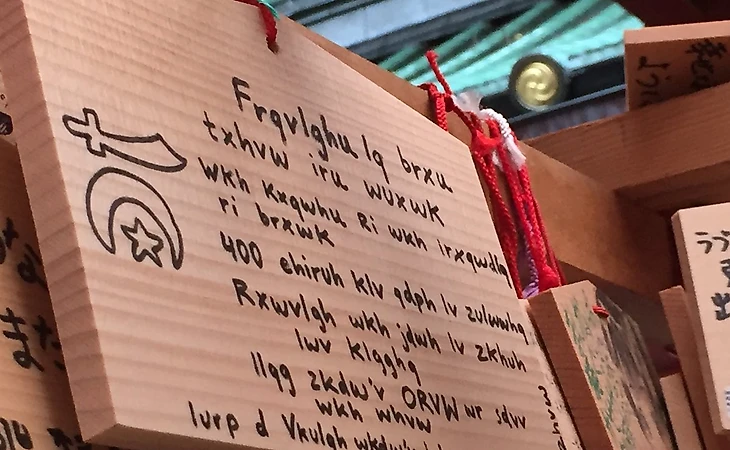 Frqvlghu lq brxu
txhvw iru wuxwk
wkh Kxqwhu Ri wkh irxqwdlq
ri brxwk
400 ehiruh klv qdph lv zulwwhq
Rxwvlgh wkh jdwh lv zkhuh
lwv klgghq
Ilqg zkdw'v ORVW wr sdvv
wkh whvw
Iurp d Vkulqh
また